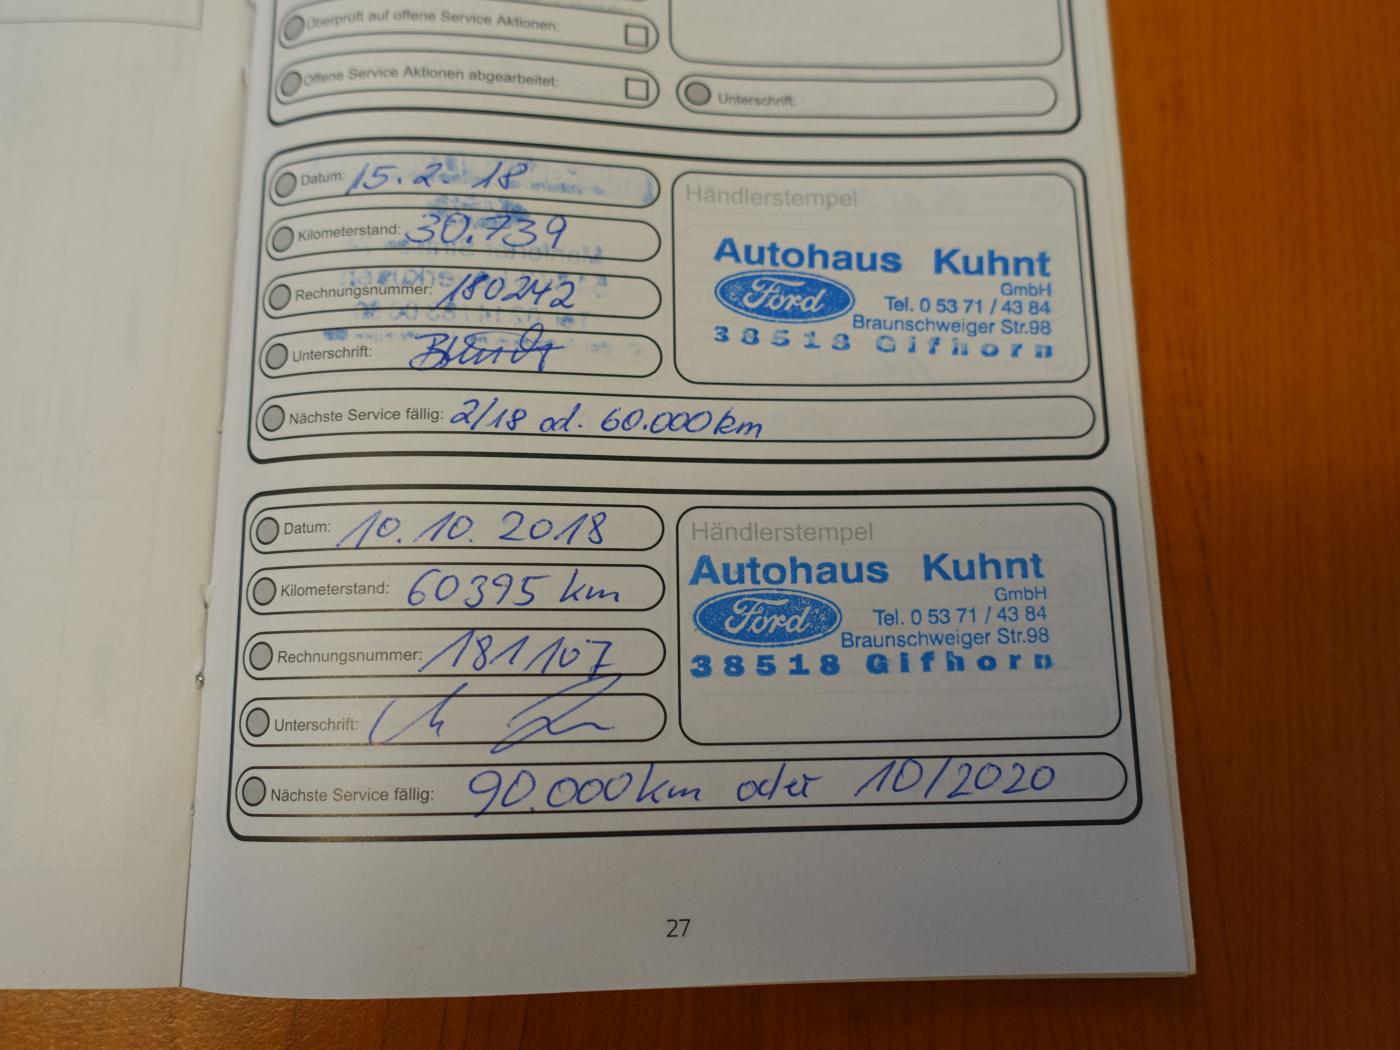 Überprüft auf offene Service Aktionen:
Offene Service Aktionen abgearbeitet:
Unterschrift:
Datum: 15.2.18
Kilometerstand: 30.739
Rechnungsnummer: 180242
Unterschrift:
Händlerstempel
Autohaus Kuhnt
GmbH
Ford
Tel. 0 53 71 / 43 84
Braunschweiger Str.98
38518 Gifhorn
Nächste Service fällig: 2/18 od. 60.000km
Datum: 10.10.2018
Kilometerstand: 60395 km
Rechnungsnummer: 181107
Unterschrift:
Händlerstempel
Autohaus Kuhnt
GmbH
Ford
Tel. 0 53 71 / 43 84
Braunschweiger Str.98
38518 Gifhorn
Nächste Service fällig: 90.000km oder 10/2020
27